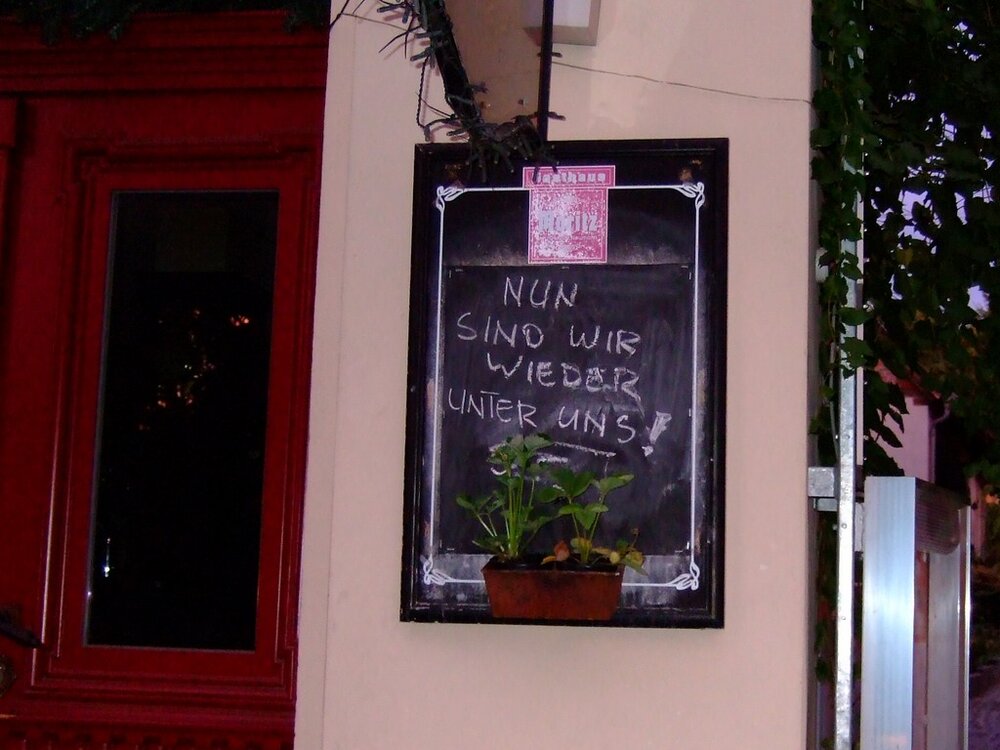 Gasthaus
Moritz
NUN
SIND WIR
WIEDER
UNTER UNS!